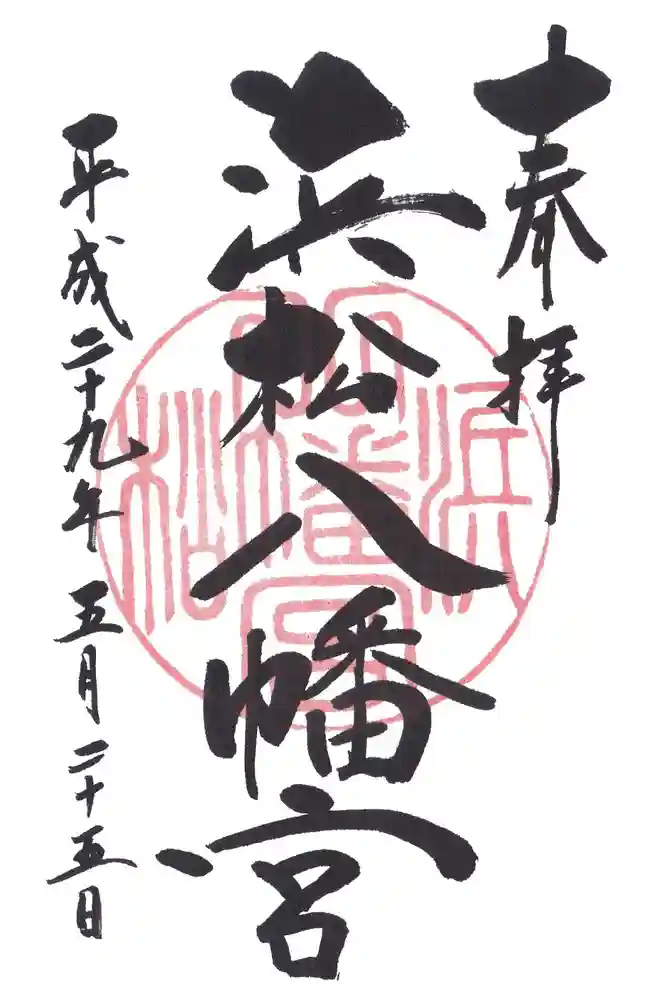 奉拝
浜松八幡宮
平成二十九年 五月二十五日
浜松
八幡宮